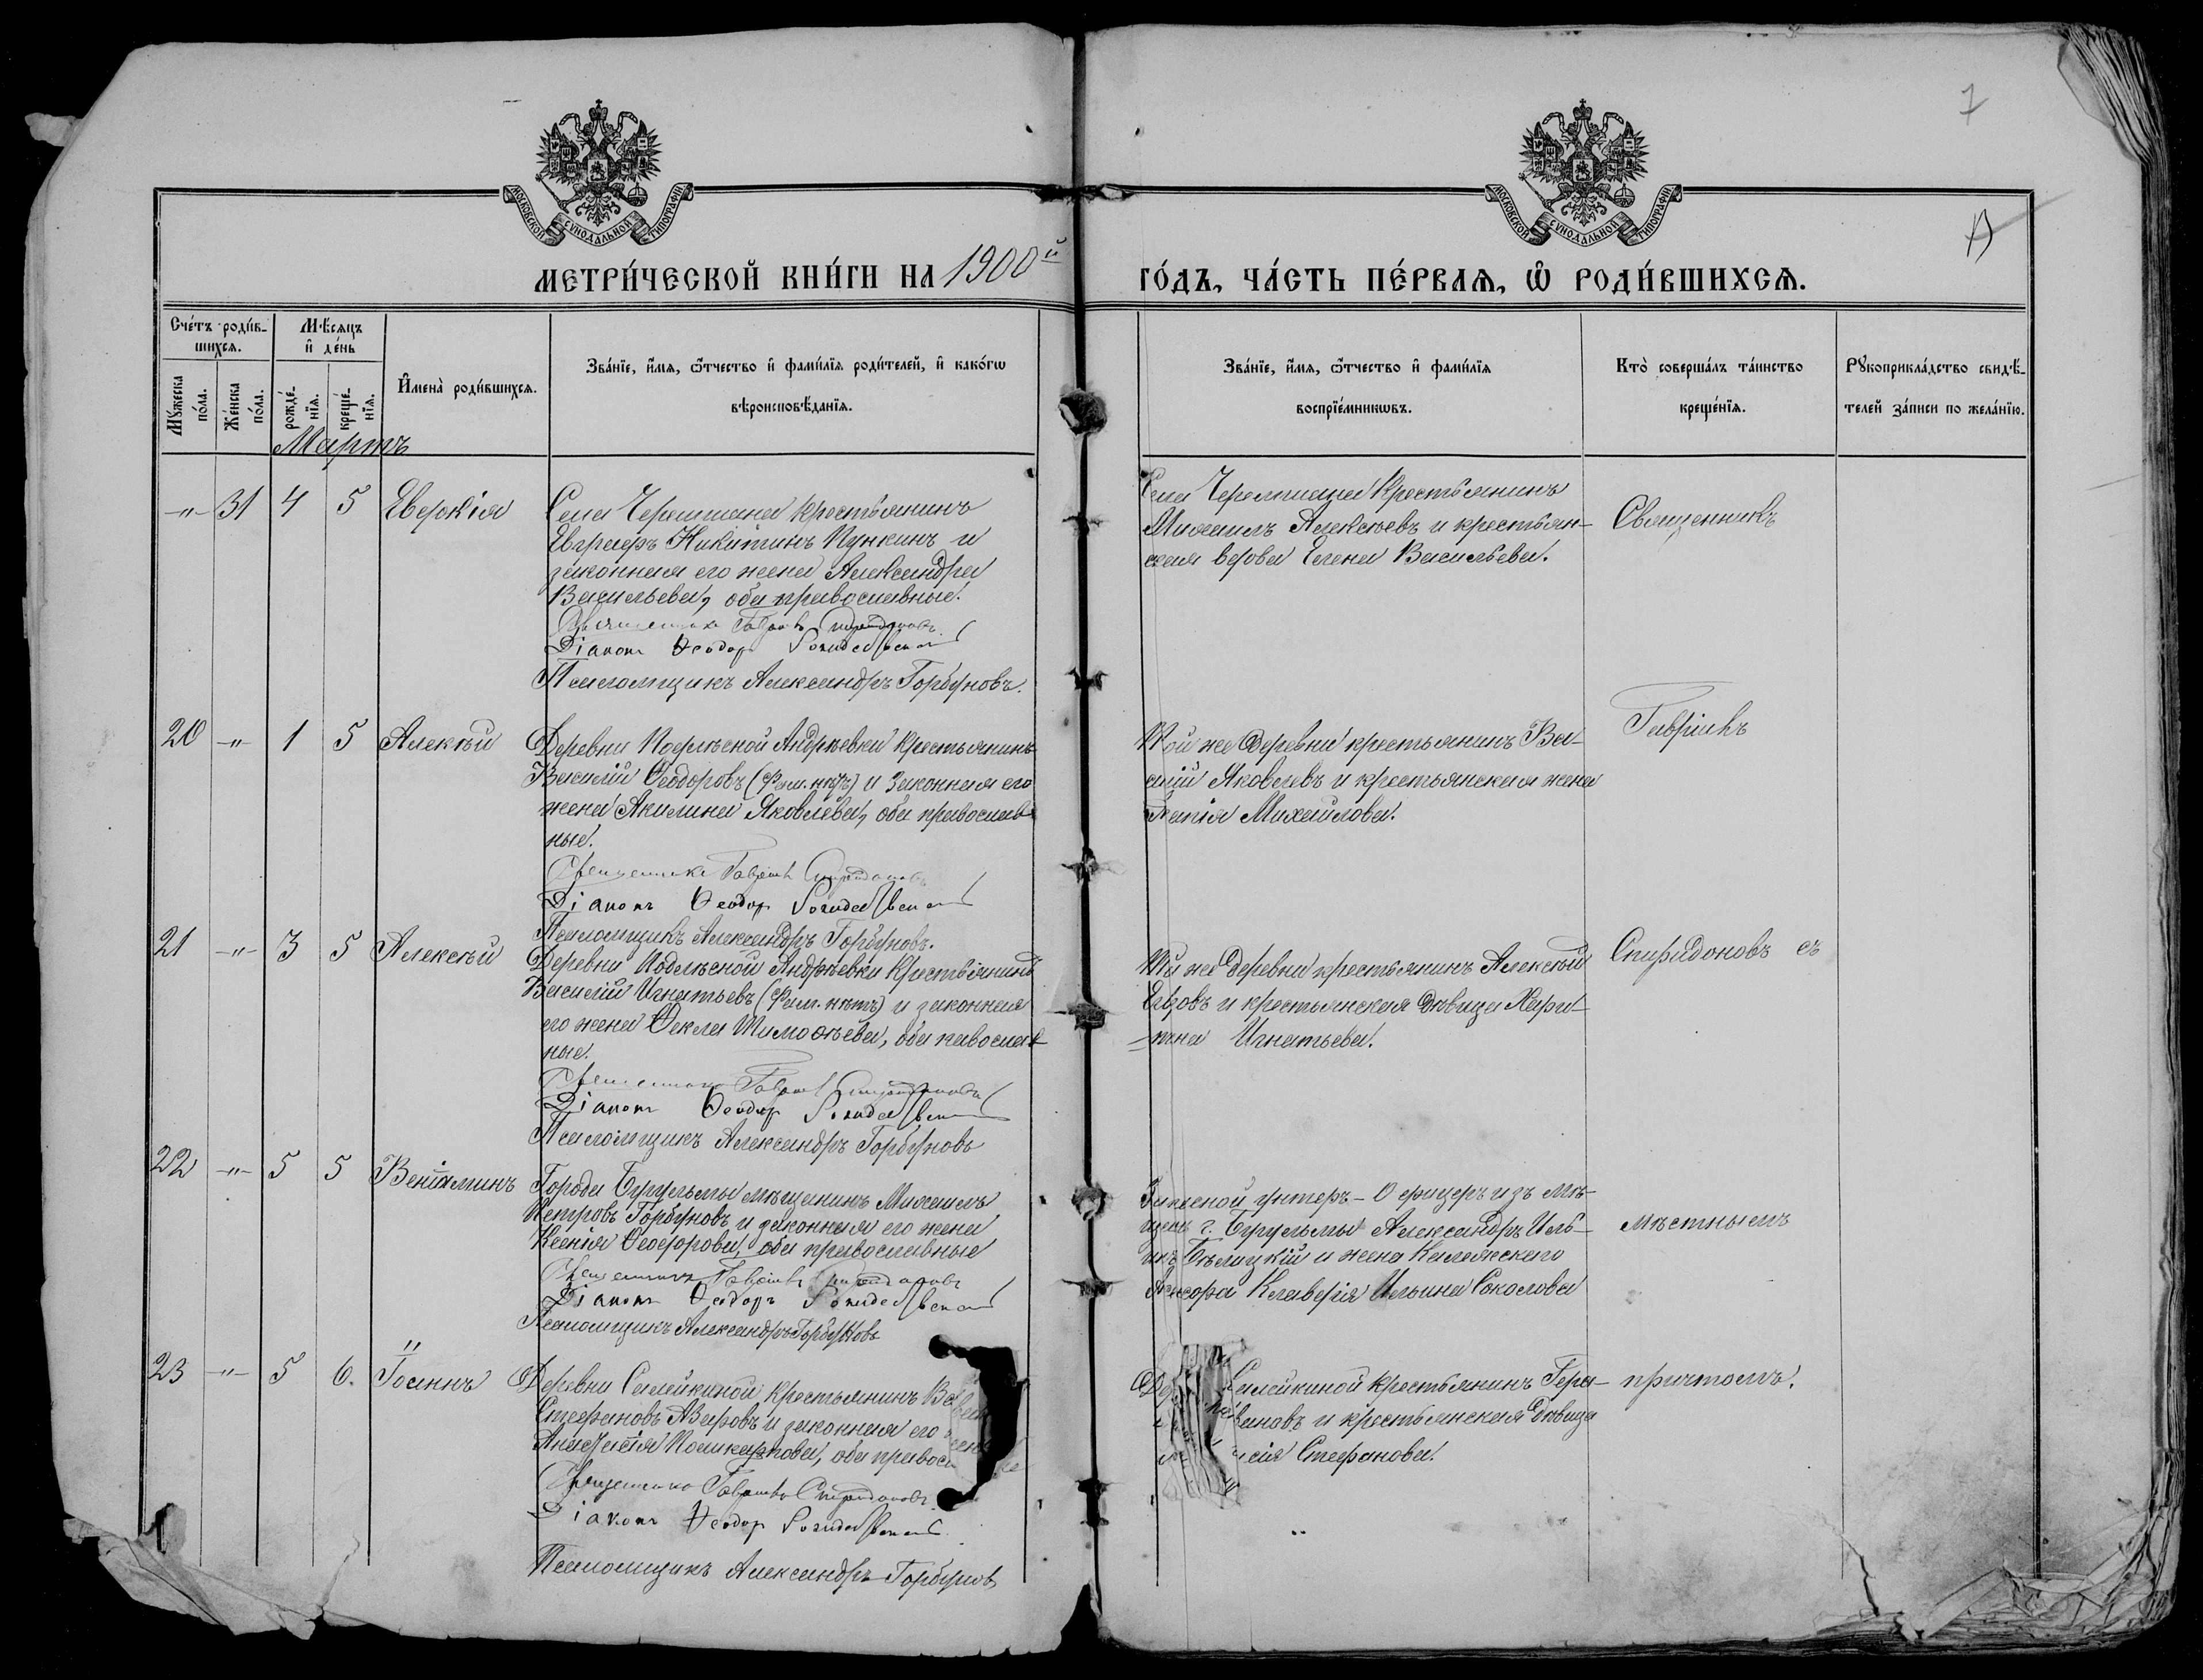 7
МОСКОВСКОЙ СѴНОДАЛЬНОЙ ТИПОГРАФІИ
МОСКОВСКОЙ СѴНОДАЛЬНОЙ ТИПОГРАФІИ
МЕТРИ́ЧЕСКОЙ КНИ́ГИ НА 1900й
ГО́ДЪ, ЧА́СТЬ ПЕ́РВАѦ, Ѡ҆ РОДИ́ВШИХСѦ.
Сче́тъ роди́в-
шихсѧ.
Мѣ́сѧцъ
и҆ де́нь
Мꙋ́жеска
по́ла.
Же́нска
по́ла.
рожде́-
нїѧ.
креще́-
нїѧ.
И҆мена̀ роди́вшихсѧ.
Зва́нїе, и҆́мѧ, ѻ҆́тчество и҆ фами́лїѧ роди́телей, и҆ како́гѡ
вѣроисповѣ́данїѧ.
Зва́нїе, и҆́мѧ, ѻ҆́тчество и҆ фами́лїѧ
воспрїе́мникѡвъ.
Кто̀ соверша́лъ та́инство
креще́нїѧ.
Рꙋкоприкла́дство свидѣ́-
телей за́писи по жела́нїю.
Мартъ
-"- 31 4 5 Евдокія
Села Черемшана крестьянинъ
Евграфъ Никитинъ Пункинъ и
законная его жена Александра
Васильева, оба православные.
Священникъ Гавріилъ Спиридоновъ
Діаконъ Ѳеодоръ
Псаломщикъ Александръ Горбуновъ.
Села Черемшана крестьянинъ
Михаилъ Алексѣевъ и крестьян-
ская вдова Елена Васильева.
Священникъ
20 -"- 1 5 Алексѣй
Деревни Подлѣсной Андреевки крестьянинъ
Василій Ѳеодоровъ (Фам. нѣтъ) и законная его
жена Акилина Яковлева, оба православ-
ные.
Священникъ Гавріилъ Спиридоновъ
Діаконъ Ѳеодоръ
Псаломщикъ Александръ Горбуновъ.
Той же деревни крестьянинъ Ва-
силій Яковлевъ и крестьянская жена
Михайлова.
Гавріилъ
21 -"- 3 5 Алексѣй
Деревни Подлѣсной Андреевки крестьянинъ
Василій Игнатьевъ (Фам. нѣтъ) и законная
его жена Ѳекла Тимоѳѣева, оба павослав-
ные.
Священникъ Гавріилъ Спиридоновъ
Діаконъ Ѳеодоръ
Псаломщикъ Александръ Горбуновъ
Той же деревни крестьянинъ Алексѣй
Егоровъ и крестьянская дѣвица Хари-
тина Игнатьева.
Спиридоновъ съ
22 -"- 5 5 Веніаминъ
Города Бугульмы мѣщанинъ Михаилъ
Петровъ Горбуновъ и законная его жена
Ксенія Ѳеодорова, оба православные
Священникъ Гавріилъ Спиридоновъ
Діаконъ Ѳеодоръ
Псаломщикъ Александръ Горбуновъ
Запасной унтеръ-Офицеръ изъ мѣ-
щанъ г. Бугульмы Александръ Иль-
инъ Бѣлицкій и жена Коллежского
Асесора Клавдія Ильина Соколова
мѣстнымъ
23 -"- 5 6. Іоаннъ
Деревни Салейкиной крестьянинъ
Стефановъ Азаровъ и законная его жена
Анастасія Поликарпова, оба
Священникъ Гавріилъ Спиридоновъ
Діаконъ Ѳеодоръ
Псаломщикъ Александръ Горбуновъ
Салейкиной крестьянинъ Гера-
и крестьянская дѣвица
Стефанова.
причтомъ.